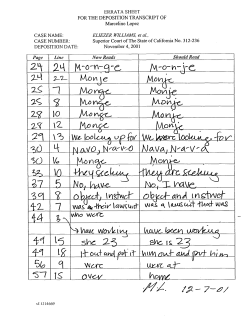 ERRATA SHEET
FOR THE DEPOSITION TRANSCRIPT OF
Marcelino Lopez
CASE NAME: ELIEZER WILLIAMS, et al.,
CASE NUMBER: Superior Court of The State of California No. 312-236
DEPOSITION DATE: November 4, 2001
Page Line Now Reads Should Read
24 24 M-o-n-g-e M-o-n-j-e
24 22 Monge Monje
25 7 Monge Monje
25 8 Monge Monje
28 10 Monge Monje
28 12 Monge Monje
29 13 We looking up for We were looking for
30 4 Navo, N-a-v-o Nava, N-a-v-a
30 16 Monge Monje
33 10 they seeking they are seeking
37 5 No, have No, I have
39 8 object, instruct object and instruct
42 7 was their lawsuit was a lawsuit that was
44 3 who were
have working have been working
49 15 she 23 she is 23
49 18 it out and put it him out and put him
56 9 were were at
57 15 over home
M.L. 12-7-01